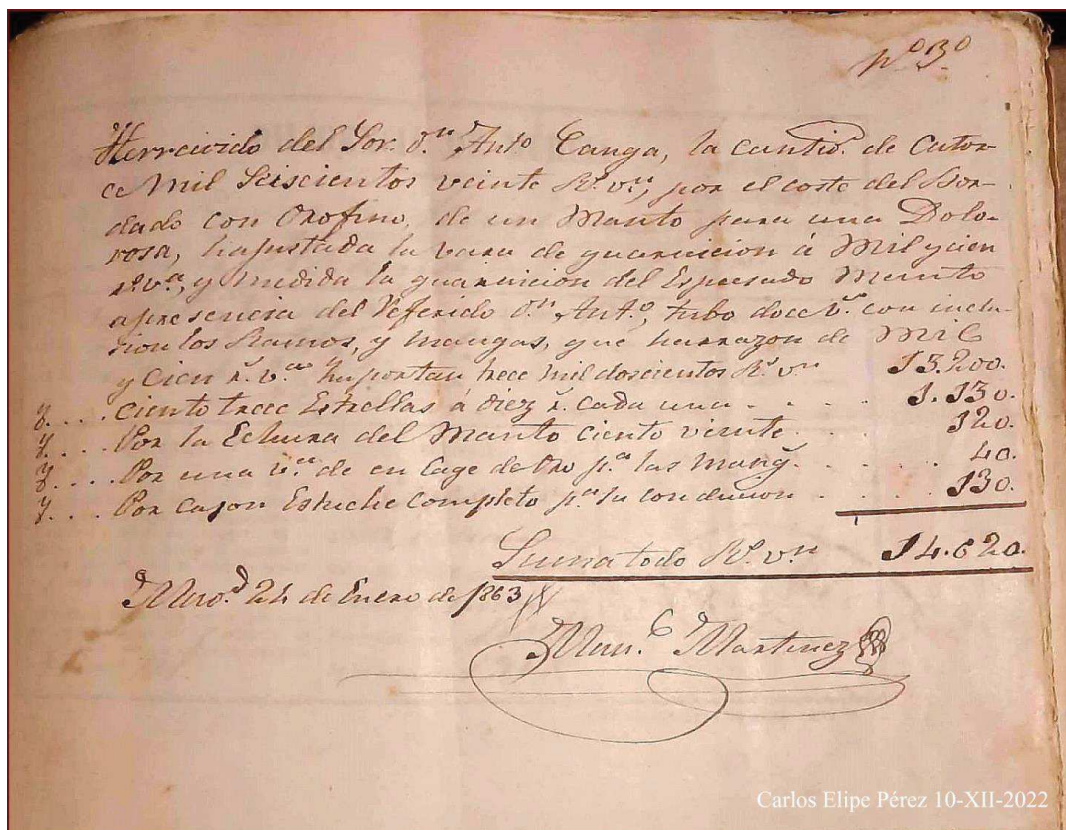 Nº 3º
Herrecivido del Sor. dn. Anto Canga, la cantid. de Cator-
ce Mil Seiscientos veinte Rs. vn., por el coste del Bor-
dado con Orofino, de un Manto para una Dolo-
rosa, hajustada la vara de guarnicion á Mil y cien
rs. vn., y medida la guarnicion del Espresado Manto
apresencia del Referido dn. Anto., tubo doce vs. con inclu-
sion los Ramos, y mangas, que harrazon de Mil
y Cien rs. vn. Importan trece mil doscientos Rs. vn 13.200.
y.... Ciento trece Estrellas á diez rs. cada una - . - . 1.130.
y.... Por la Echura del Manto ciento veinte . . . 120.
y.... Por una va. de en Cage de Oro pa. las mang. . . . 40.
y.... Por cajon Estuche completo pa. su conducion . . . 130.
Suma todo Rs. vn 14.620.
24 de Enero de 1863
Man. Martinez
Carlos Elipe Pérez 10-XII-2022